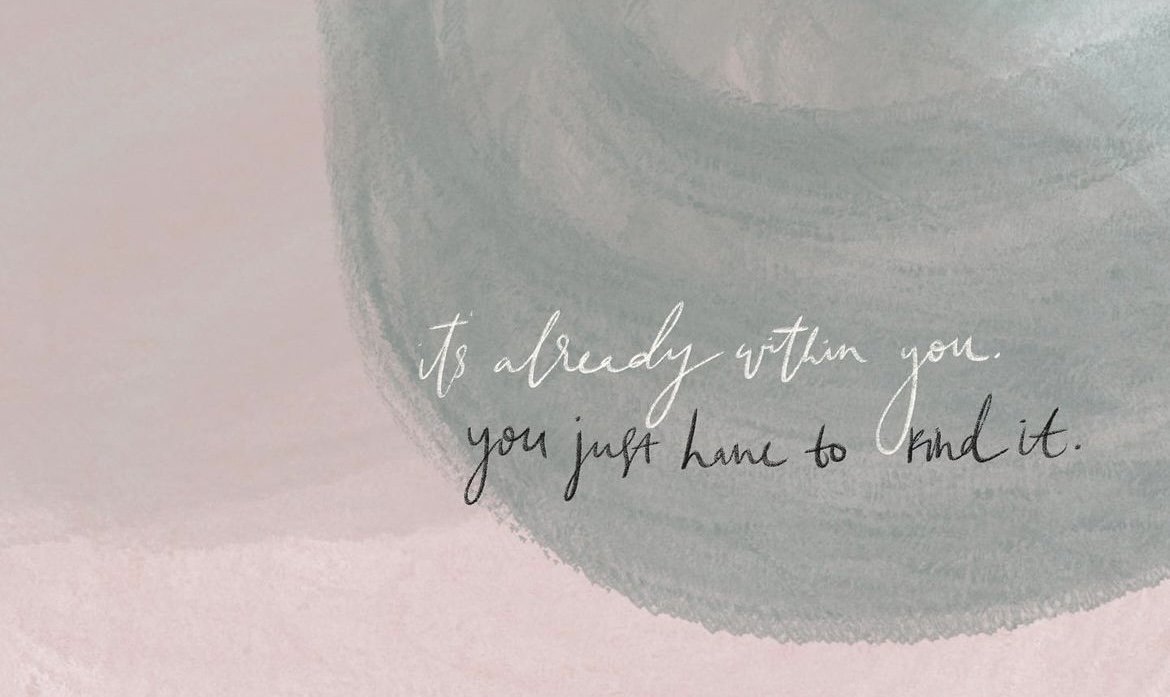 it's already within you.
you just have to find it.